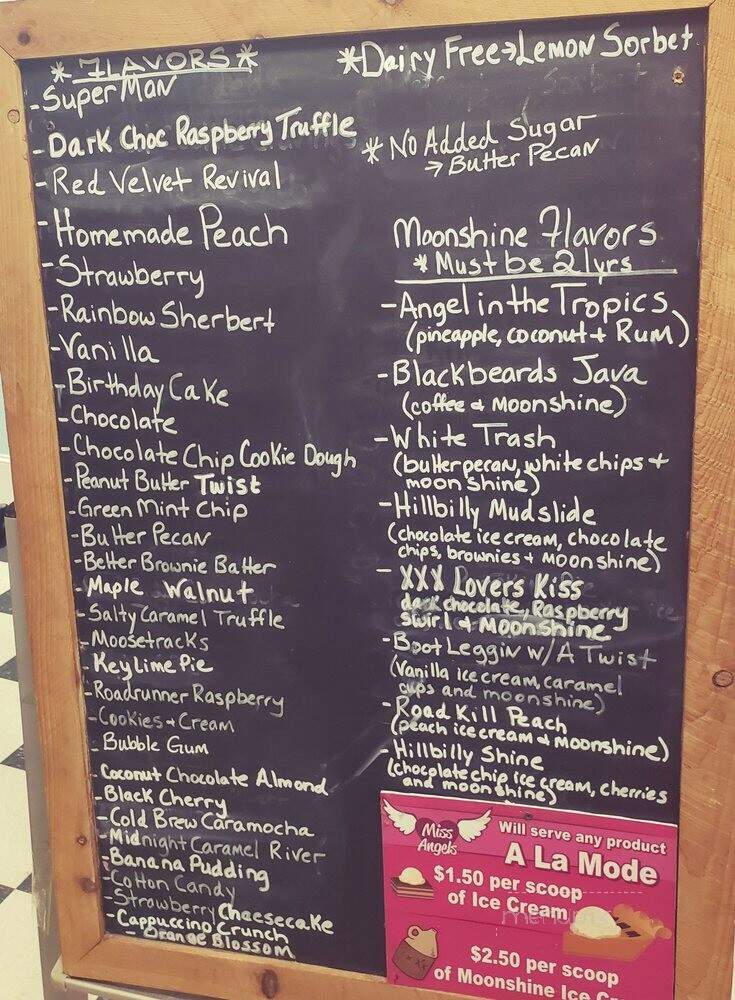 * FLAVORS *
- SuperMan
- Dark Choc Raspberry Truffle
- Red Velvet Revival
- Homemade Peach
- Strawberry
- Rainbow Sherbert
- Vanilla
- Birthday Cake
- Chocolate
- Chocolate Chip Cookie Dough
- Peanut Butter Twist
- Green Mint Chip
- Butter Pecan
- Better Brownie Batter
- Maple Walnut
- Salty Caramel Truffle
- Moosetracks
- Key Lime Pie
- Roadrunner Raspberry
- Cookies + Cream
- Bubble Gum
- Coconut Chocolate Almond
- Black Cherry
- Cold Brew Caramocha
- Midnight Caramel River
- Banana Pudding
- Cotton Candy
- Strawberry Cheesecake
- Cappuccino Crunch
- Orange Blossom
* Dairy Free → Lemon Sorbet
* No Added Sugar
→ Butter Pecan
Moonshine Flavors
* Must be 21yrs
- Angel in the Tropics
(pineapple, coconut + Rum)
- Blackbeards Java
(coffee & Moonshine)
- White Trash
(butter pecan, white chips +
moonshine)
- Hillbilly Mudslide
(chocolate ice cream, chocolate
chips, brownies + Moonshine)
- XXX Lovers Kiss
dark chocolate, Raspberry
swirl & Moonshine
- Boot Leggin w/ A Twist
(Vanilla ice cream, caramel
cups and moonshine)
- Road Kill Peach
(peach ice cream & Moonshine)
- Hillbilly Shine
(chocolate chip ice cream, cherries
and moonshine)
Miss
Angels
Will serve any product
A La Mode
$1.50 per scoop
of Ice Cream
$2.50 per scoop
of Moonshine Ice